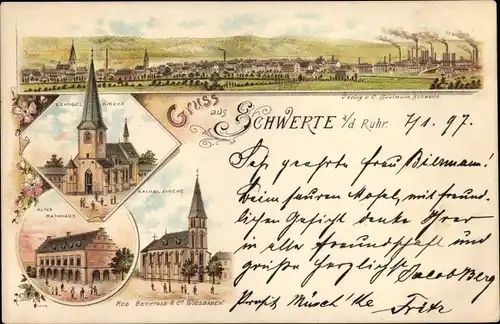 Verlag v. C. Bootmann, Schwerte.
Gruss aus SCHWERTE a/d Ruhr. 7/1. 97.
EVANGEL. KIRCHE
KATHOL. KIRCHE
ALTES RATHHAUS
ROD. BECHTOLD & Co WIESBADEN
Sehr geehrte Frau Biermann!
Beim sauren Mosel, mit freund-
lichen Gesicht denke Ihrer
in aller Freundschaft und
grüße herzlichst Jacob Berg
Prosit Fritz